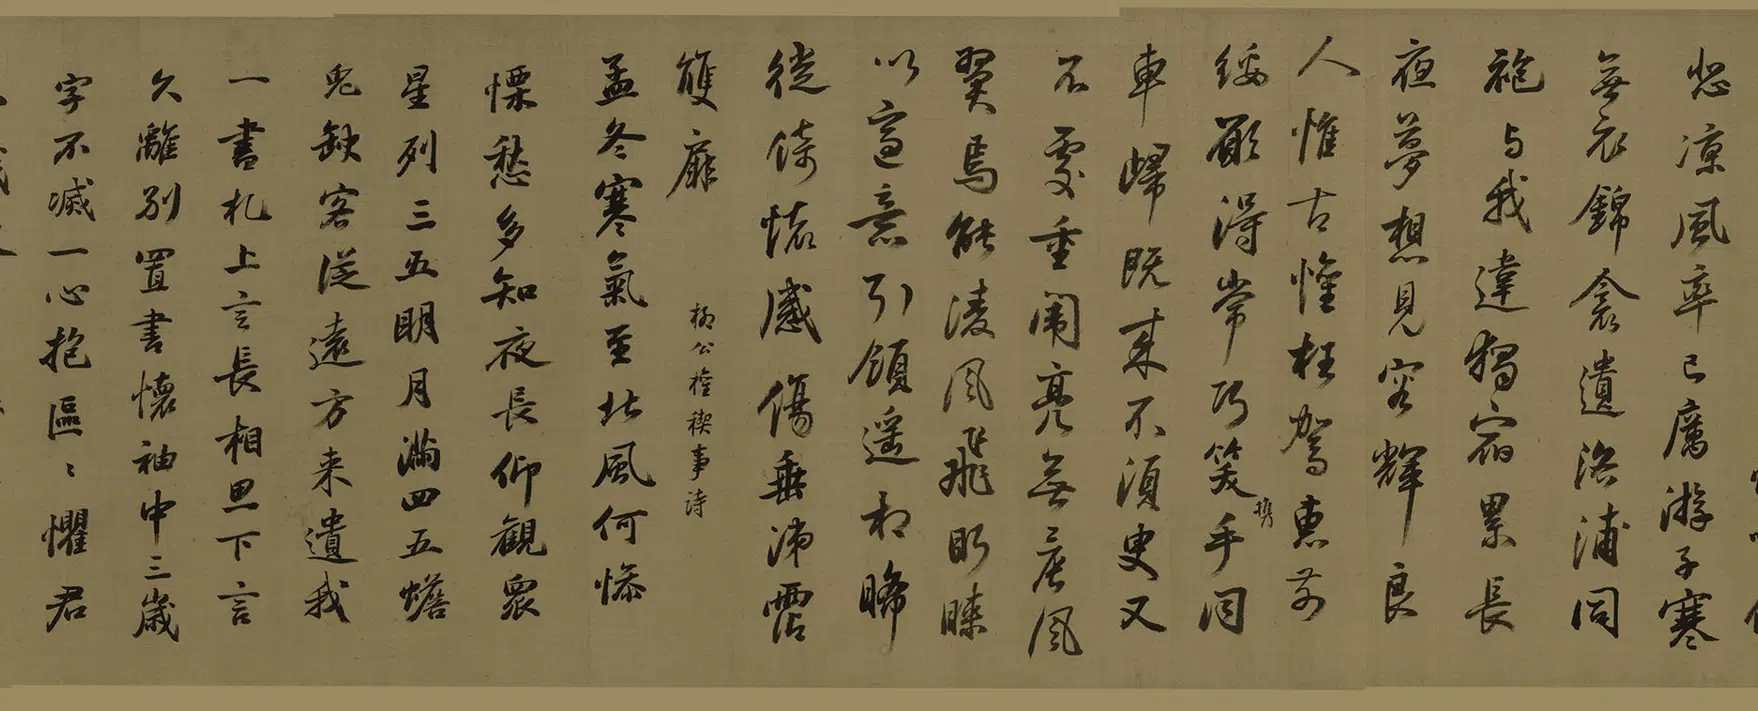 悲涼風率已厲游子寒
無衣錦衾遺洛浦同
袍与我違獨宿累長
夜夢想見容輝良
人惟古懽枉駕惠前
綏願得常巧笑携手同
車歸既来不須臾又
不處重闈亮無晨風
翼焉能淩風飛眄睞
以適意引領遥相睎
徙倚懷感傷垂涕霑
雙扉
柳公權禊事詩
孟冬寒氣至北風何慘
慄愁多知夜長仰觀眾
星列三五明月滿四五蟾
兔缺客從遠方来遺我
一書札上言長相思下言
久離別置書懷袖中三歲
字不滅一心抱區〻懼君